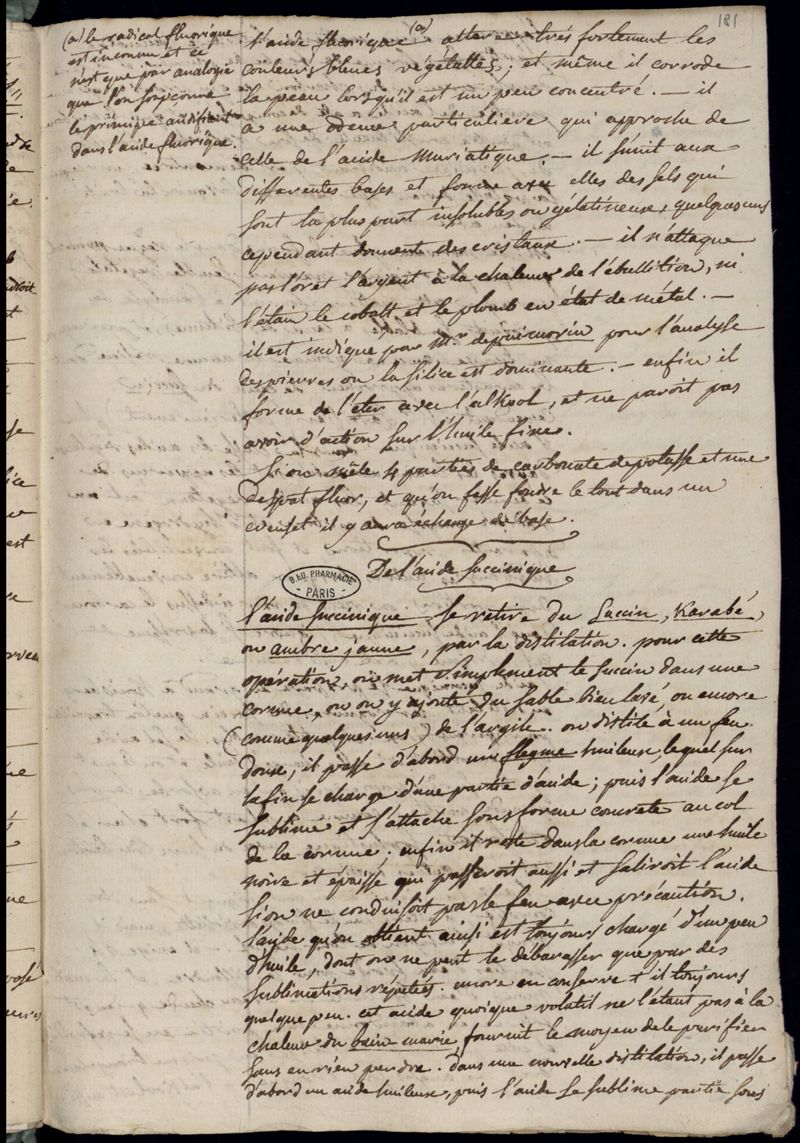 181
(a) le radical fluorique
est inconnu et ce
n'est que par analogie
que l'on soupçonne
le principe acidifiant
dans l'acide fluorique.
l'acide fluorique (a) altere très fortement les
couleurs bleues végétalles; et même il corrode
la peau lorsqu'il est un peu concentré. — il
a une odeur particuliere qui approche de
celle de l'acide muriatique. — il s'unit aux
differentes bases et forme avec elles des sels qui
sont la plus part insolubles ou gélatineux, quelques uns
cependant donnent des cristaux. — il n'attaque
pas l'or et l'argent à la chaleur de l'ébullition, ni
l'étain le cobalt et le plomb en état de métal. —
il est indiqué par Mr. depuimorin pour l'analyse
des pierres ou la silice est dominante. — enfin il
forme de l'eter avec l'alkool, et ne paroit pas
avoir d'action sur l'huile fixe.
Si on mêle 4 parties de carbonate de potasse et une
de spat fluor, et qu'on fasse fondre le tout dans un
creuset il y aura échange de base.
De l'acide succinique
B.I.U. PHARMACIE
PARIS
l'acide succinique se retire du Succin, Karabé,
ou ambre jaune, par la distilation. pour cette
opération, on met simplement le succin dans une
cornue, ou on y ajoute du sable bien lavé, ou encore
(comme quelques uns) de l'argile. on distile à un feu
doux; il passe d'abord un flegme huileux, lequel sur
la fin se charge d'une partie d'acide; puis l'acide se
sublime et s'attache sous forme concrete au col
de la cornue; enfin il reste dans la cornue une huile
noire et épaisse qui passeroit aussi et saliroit l'acide
si on ne conduisoit pas le feu avec précaution.
l'acide qu'on obtient ainsi est toujours chargé d'un peu
d'huile, dont on ne peut le débarasser que par des
sublimations répétées. encore en conserve t il toujours
quelque peu. cet acide quoique volatil ne l'étant pas à la
chaleur du bain marie, fournit le moyen de le purifier
sans en rien perdre. dans une nouvelle distilation, il passe
d'abord un acide huileux, puis l'acide se sublime partie sous